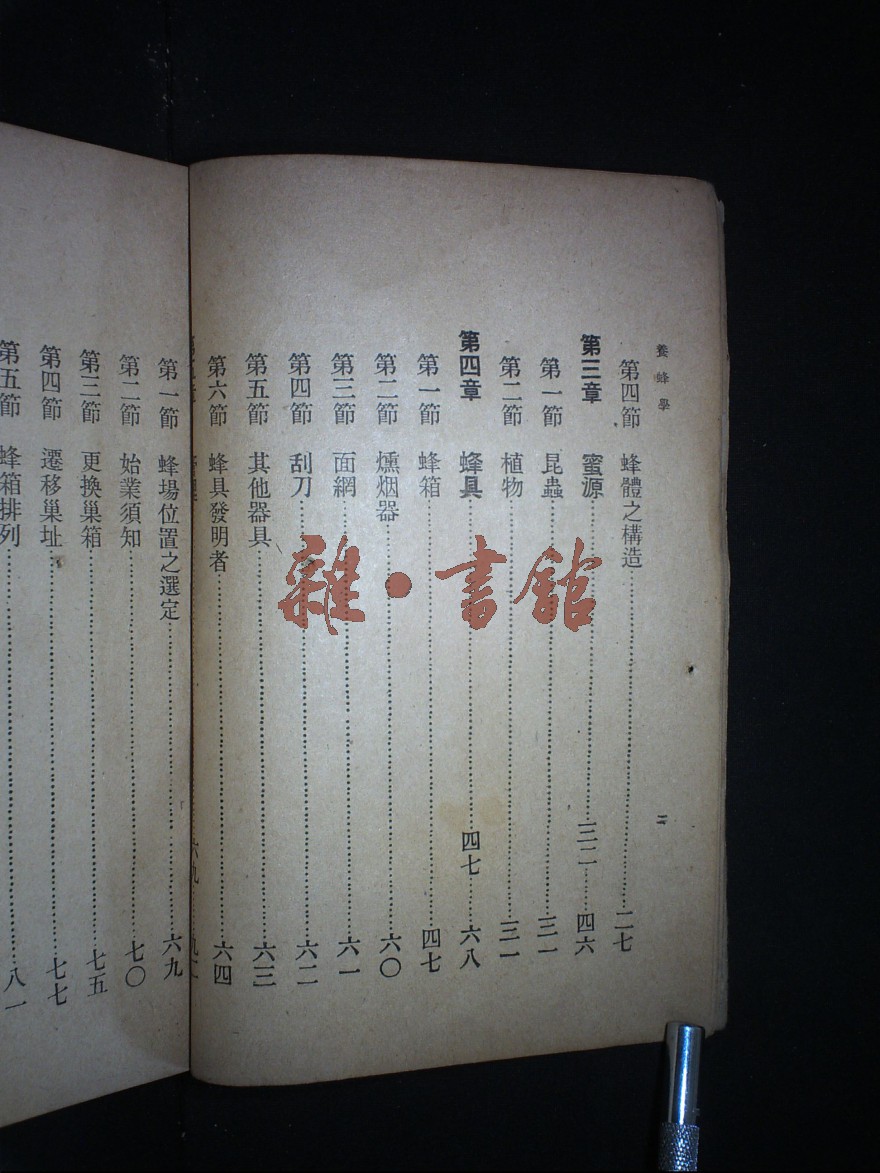 養蜂學
二
第四節 蜂體之構造……二七
第三章 蜜源……三二……四六
第一節 昆蟲……三一
第二節 植物……三一
第四章 蜂具……四七……六八
第一節 蜂箱……四七
第二節 燻烟器……六〇
第三節 面網……六一
第四節 刮刀……六二
第五節 其他器具……六三
第六節 蜂具發明者……六四
第一節 蜂場位置之選定……六九
第二節 始業須知……七〇
第三節 更換巢箱……七五
第四節 遷移巢址……七七
第五節 蜂箱排列……八一
雜·書館